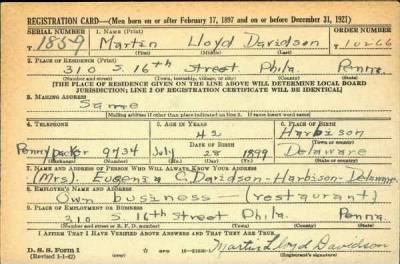 REGISTRATION CARD—(Men born on or after February 17, 1897 and on or before December 31, 1921)
SERIAL NUMBER 1. NAME (Print) ORDER NUMBER
1859 Martin Lloyd Davidson 10266
(First) (Middle) (Last)
2. PLACE OF RESIDENCE (Print)
310 S. 16th Street Phila. Penna.
(Number and street) (Town, township, village, or city) (County) (State)
[THE PLACE OF RESIDENCE GIVEN ON THE LINE ABOVE WILL DETERMINE LOCAL BOARD
JURISDICTION; LINE 2 OF REGISTRATION CERTIFICATE WILL BE IDENTICAL]
3. MAILING ADDRESS
Same
[Mailing address if other than place indicated on line 2. If same insert word same]
4. TELEPHONE 5. AGE IN YEARS 6. PLACE OF BIRTH
42 Harbison
DATE OF BIRTH (Town or county)
Pennypacker 9734 July 28 1899 Delaware
(Exchange) (Number) (Mo.) (Day) (Yr.) (State or country)
7. NAME AND ADDRESS OF PERSON WHO WILL ALWAYS KNOW YOUR ADDRESS
Mrs. Eugenia C. Davidson-Harbison-Delaware
8. EMPLOYER'S NAME AND ADDRESS
Own business—(restaurant)
9. PLACE OF EMPLOYMENT OR BUSINESS
310 S. 16th Street Phila. Penna.
(Number and street or R. F. D. number) (Town) (County) (State)
I AFFIRM THAT I HAVE VERIFIED ABOVE ANSWERS AND THAT THEY ARE TRUE.
D. S. S. Form 1
(Revised 1-1-42) (over)
Martin Lloyd Davidson
(Registrant's signature)